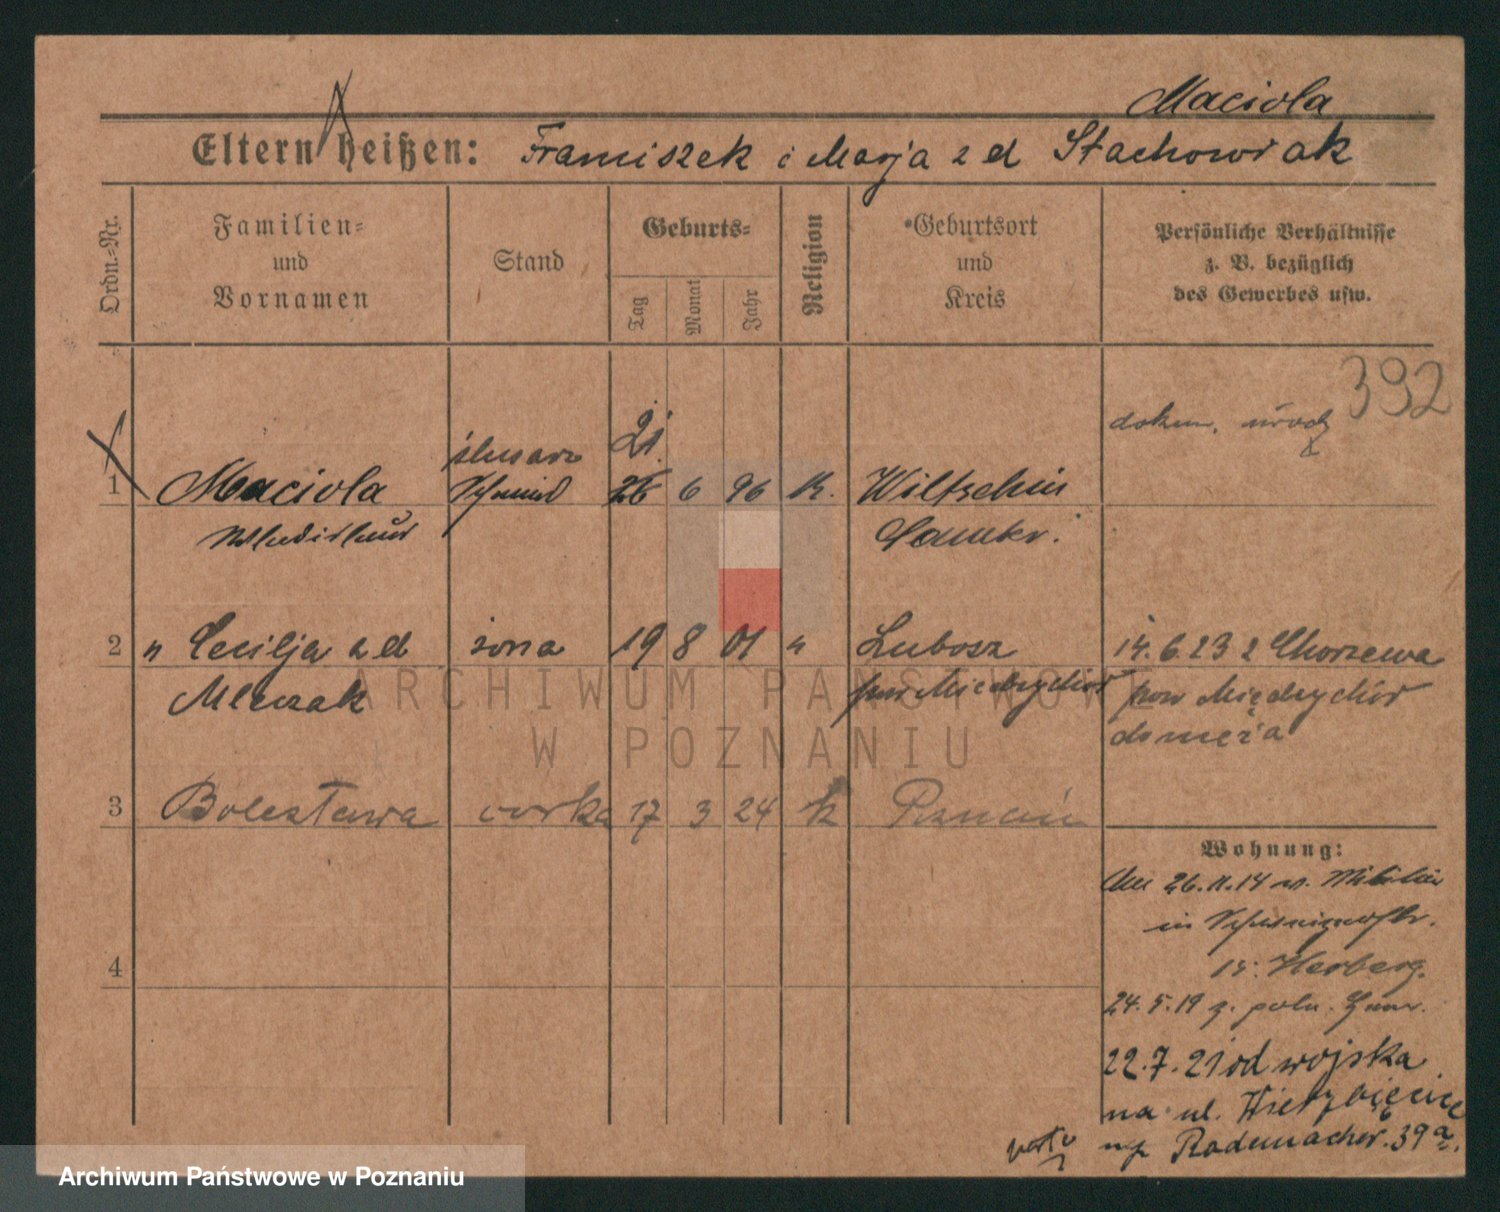 Maciola
Eltern heißen: Franciszek i Marja z d Stachowiak
Ordn.-Nr.
Familien-
und
Vornamen
Stand
Geburts-
Tag
Monat
Jahr
Religion
Geburtsort
und
Kreis
Persönliche Verhältnisse
z. B. bezüglich
des Gewerbes usw.
392
dokum. urodz
21.
ślusarz
1 Maciola Schmied 26 6 96 K. Wiltschin
Wladislaus Samter.
2 " Cecilja z d żona 19 8 01 " Lubosz 14.6.23 z Chorzewa
Mleczak pow Międzychód pow Międzychód
do męża
3 Bolesława córka 17 3 24 k Poznań
Wohnung:
26.11.14 v. Militär
in
15. Herberg.
4
24.5.19 z. poln.
22.7.21 od wojska
na ul. Wierzbięcice
Rademacher. 39a.
ARCHIWUM PAŃSTWOWE
W POZNANIU
Archiwum Państwowe w Poznaniu